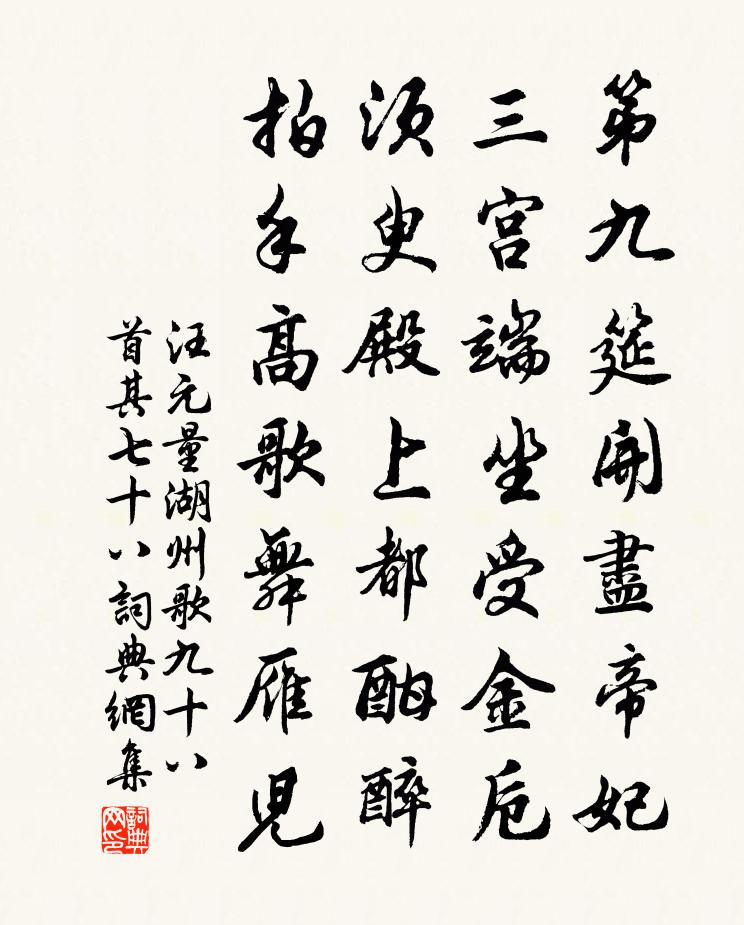 第九筵開盡帝妃
三宮端坐受金卮
須臾殿上都酣醉
拍手高歌舞雁兒
汪元量湖州歌九十八
首其七十八詞典網集
詞典
网印